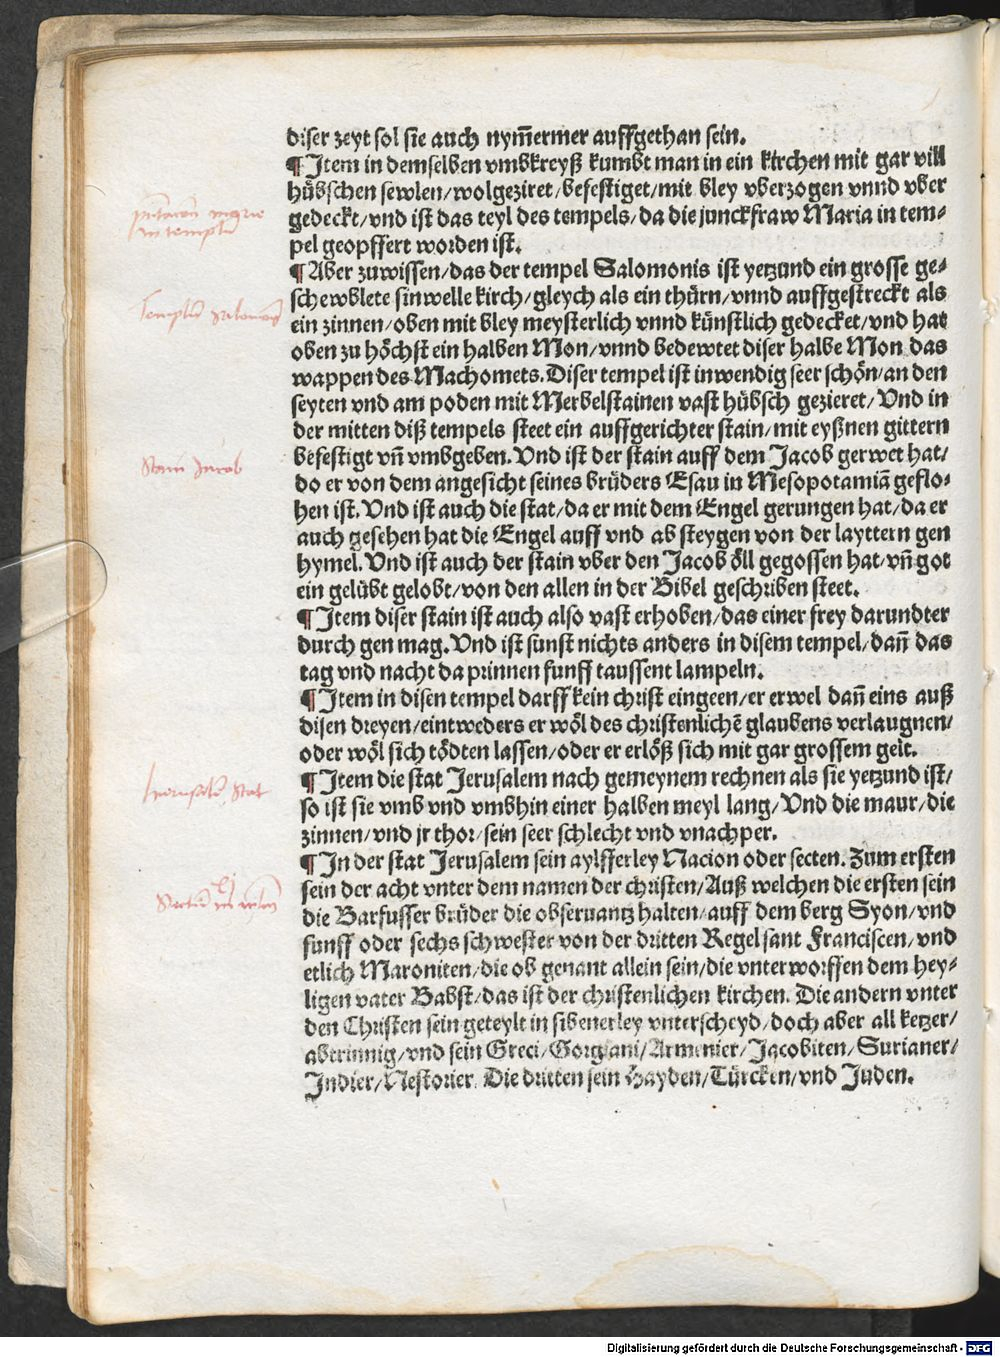 diser zeyt sol sie auch nym̄ermer auffgethan sein.
¶ Item in demselben vmbkreyß kumbt man in ein kirchen mit gar vill
hübschen sewlen/wolgeziret/befestiget/mit bley vberzogen vnnd vber
gedeckt/vnd ist das teyl des tempels/da die junckfraw Maria in tem⸗
pel geopffert worden ist.
¶ Aber zuwissen/das der tempel Salomonis ist yetzund ein grosse ge⸗
schewblete sinwelle kirch/gleych als ein thürn/vnnd auffgestreckt als
ein zinnen/oben mit bley meysterlich vnnd künstlich gedecket/vnd hat
oben zu höchst ein halben Mon/vnnd bedewtet diser halbe Mon das
wappen des Machomets. Diser tempel ist inwendig seer schön/an den
seyten vnd am poden mit Merbelstainen vast hübsch gezieret/Vnd in
der mitten diß tempels steet ein auffgerichter stain/mit eyßnen gittern
befestigt vn̄ vmbgeben. Vnd ist der stain auff dem Jacob gerwet hat/
do er von dem angesicht seines brüders Esau in Mesopotamiā geflo⸗
hen ist. Vnd ist auch die stat/da er mit dem Engel gerungen hat/da er
auch gesehen hat die Engel auff vnd ab steygen von der layttern gen
hymel. Vnd ist auch der stain vber den Jacob öll gegossen hat/vn̄ got
ein gelübt gelobt/von den allen in der Bibel geschriben steet.
¶ Item diser stain ist auch also vast erhoben/das einer frey darundter
durch gen mag. Vnd ist sunst nichts anders in disem tempel/dan̄ das
tag vnd nacht da prinnen funff taussent lampeln.
¶ Item in disen tempel darff kein christ eingeen/er erwel dan̄ eins auß
disen dreyen/eintweders er wöl des christenlichē glaubens verlaugnen/
oder wöl sich tödten lassen/oder er erlöß sich mit gar grossem gelt.
¶ Item die stat Jerusalem nach gemeynem rechnen als sie yetzund ist/
so ist sie vmb vnd vmbhin einer halben meyl lang/Vnd die maur/die
zinnen/vnd jr thor/sein seer schlecht vnd vnachper.
¶ In der stat Jerusalem sein aylfferley Nacion oder secten. Zum ersten
sein der acht vnter dem namen der christen/Auß welchen die ersten sein
die Barfusser brüder die obseruantz halten/auff dem berg Syon/vnd
funff oder sechs schwester von der dritten Regel sant Franciscen/vnd
etlich Maroniten/die ob genant allein sein/die vnterworffen dem hey⸗
ligen vater Babst/das ist der christenlichen kirchen. Die andern vnter
den Christen sein geteylt in sibenerley vnterscheyd/doch aber all ketzer/
abtrinnig/vnd sein Greci/Gorgiani/Armenier/Jacobiten/Surianer/
Indier/Nestorier. Die dritten sein Hayden/Türcken/vnd Juden.
in templū
Templū Salomonis
Stain Jacob
Stat
Digitalisierung gefördert durch die Deutsche Forschungsgemeinschaft - DFG